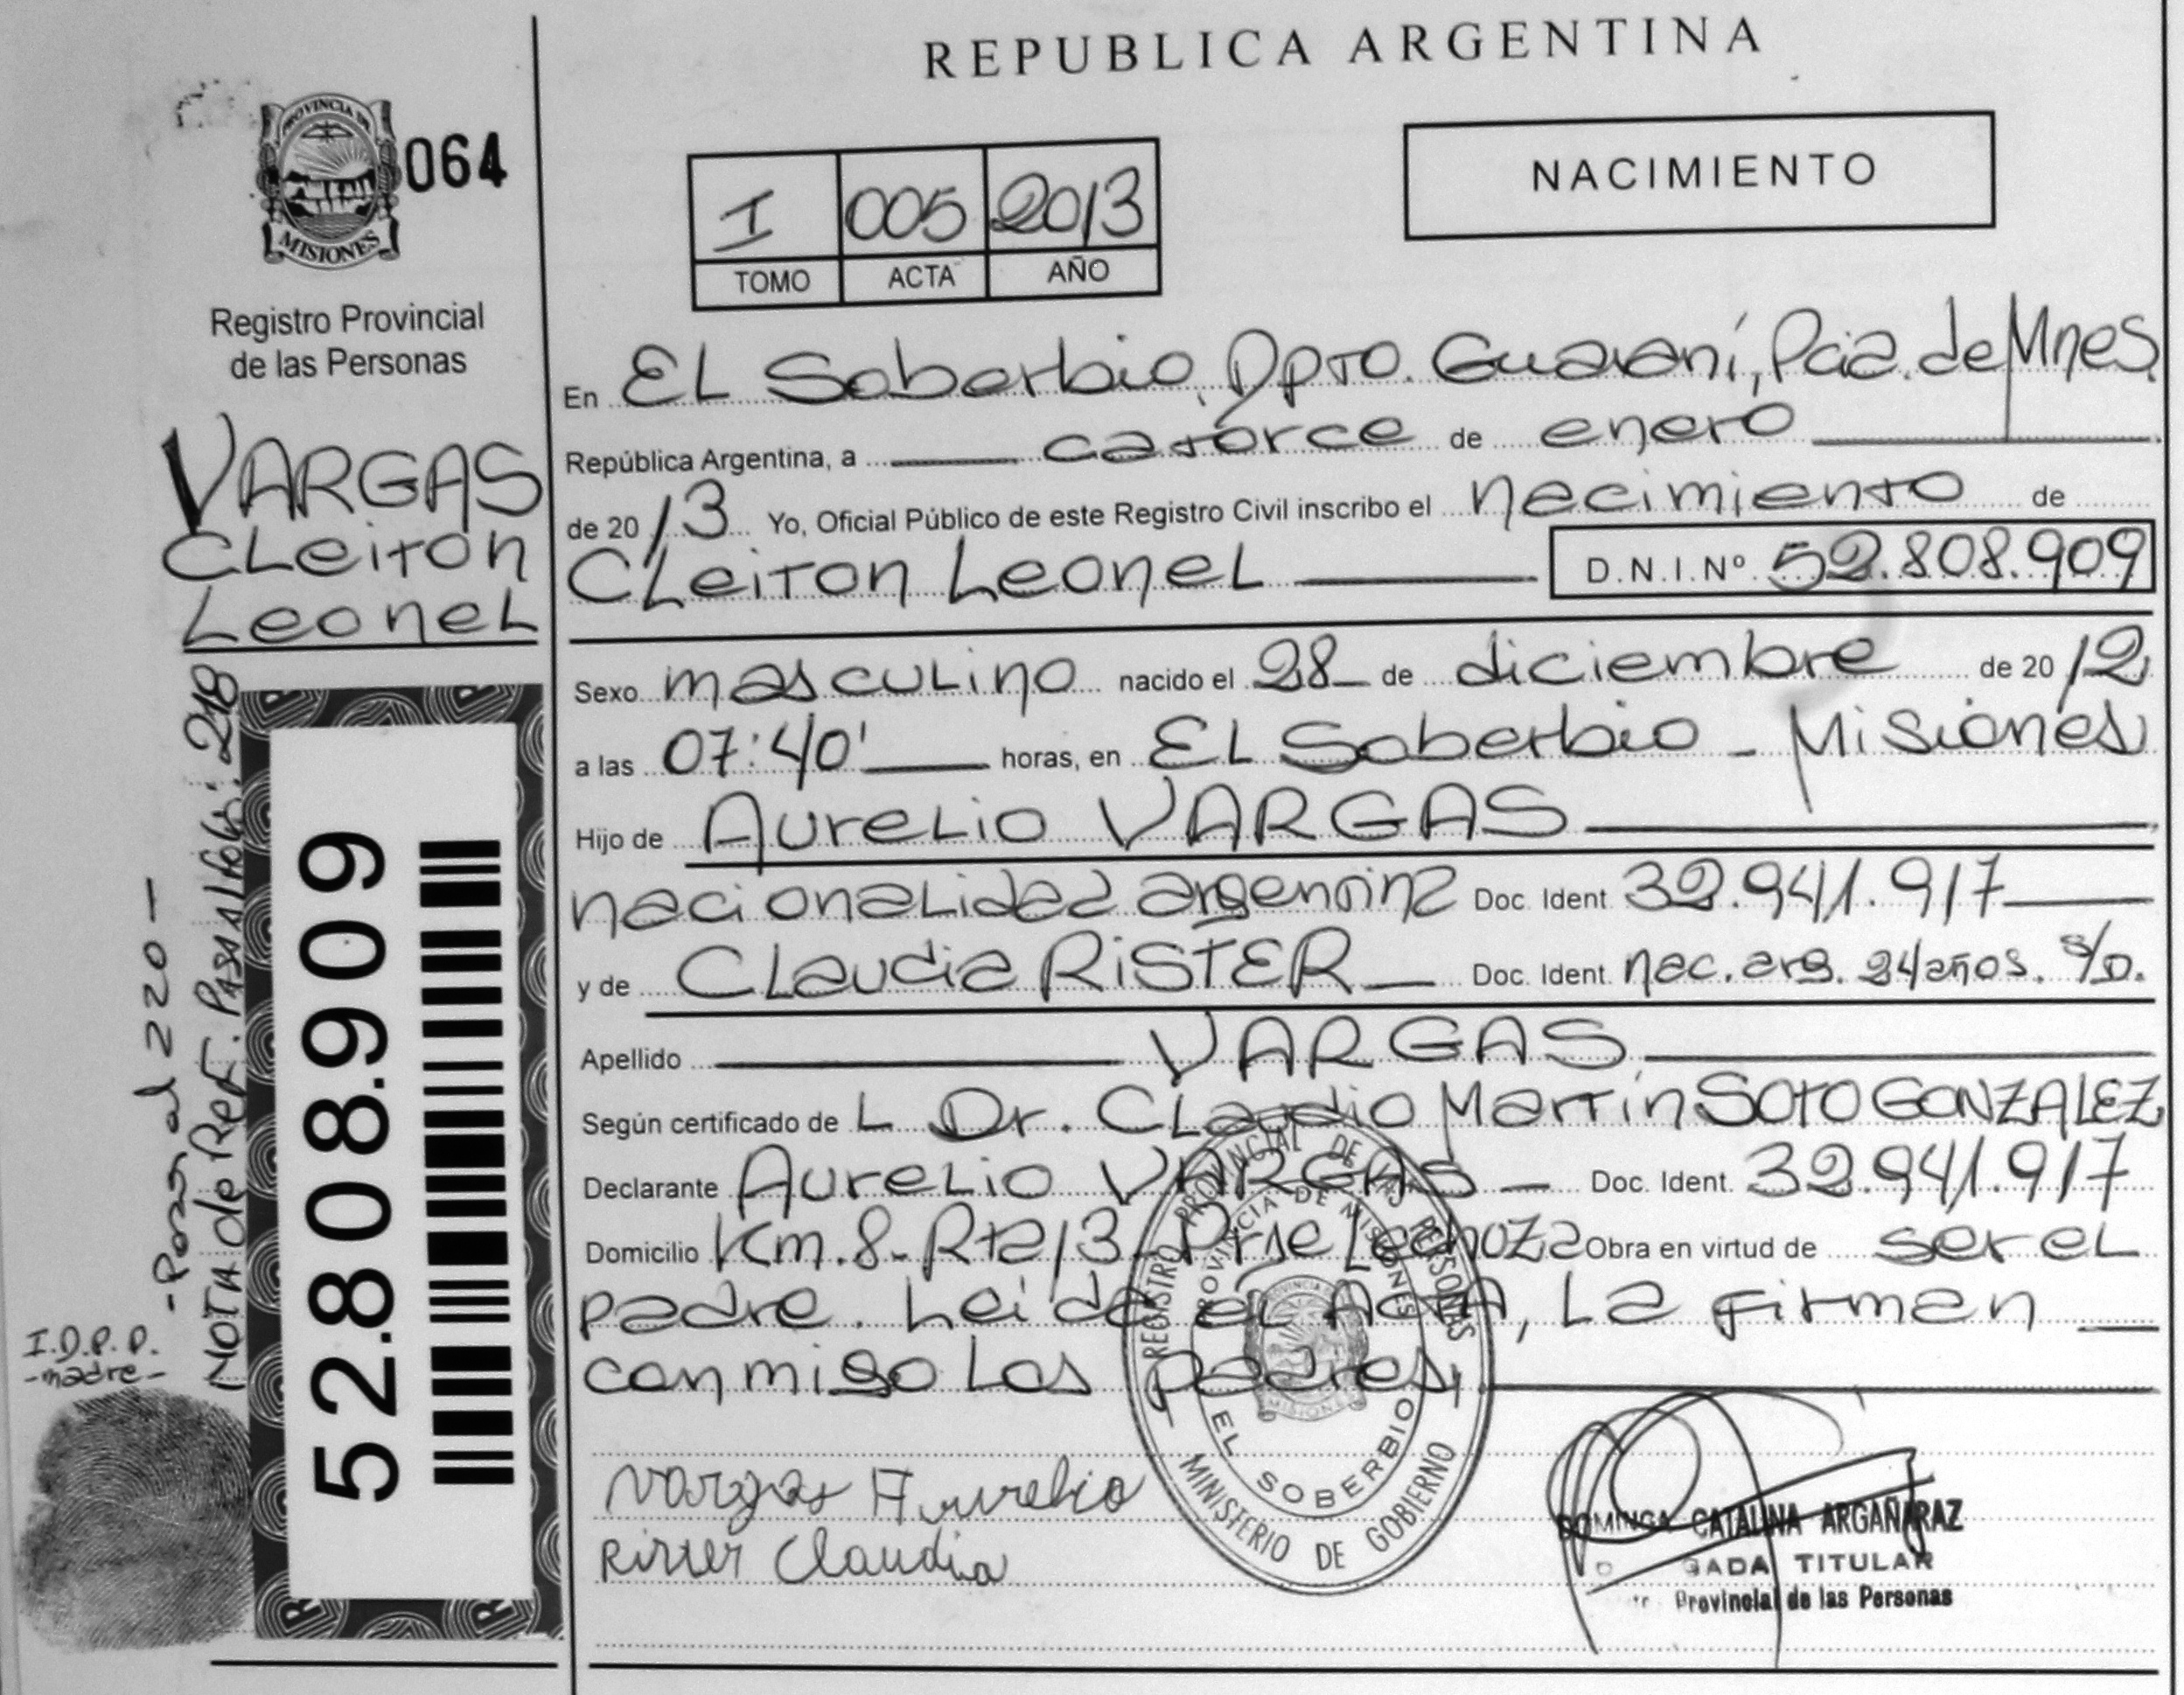 REPUBLICA ARGENTINA
PROVINCIA DE
MISIONES
064
Registro Provincial
de las Personas
VARGAS
CLeiton
LeoneL
I 005 2013
TOMO ACTA AÑO
NACIMIENTO
En EL Soberbio, Dpto. Guaraní, Pcia. de Mnes.
República Argentina, a catorce de enero
de 2013 Yo, Oficial Público de este Registro Civil inscribo el nacimiento de
CLeiton LeoneL D.N.I.Nº 52.808.909
Sexo masculino nacido el 28 de diciembre de 2012
a las 07:40' horas, en EL Soberbio - Misiones
Hijo de Aurelio VARGAS
nacionalidad argentina Doc. Ident. 32.941.917
y de Claudia RiSTER Doc. Ident. nac. arg. 24 años. S/D.
Apellido VARGAS
Según certificado de L Dr. Claudio Martín SOTO GONZALEZ
Declarante Aurelio VARGAS Doc. Ident. 32.941.917
Domicilio Km. 8- Rta 13- Pje Lechoza Obra en virtud de ser el
padre. Leída el Acta, La firman
conmigo Los padres,
Vargas Aurelio
Rister Claudia
REGISTRO PROVINCIAL DE LAS PERSONAS
PROVINCIA DE MISIONES
MISIONES
EL SOBERBIO
MINISTERIO DE GOBIERNO
DOMINGA CATALINA ARGAÑARAZ
GADA TITULAR
Provincial de las Personas
52.808.909
Nota de Ref. Pasa al folio: 218
- Pasa al 220 -
I.D.P.D.
-madre-